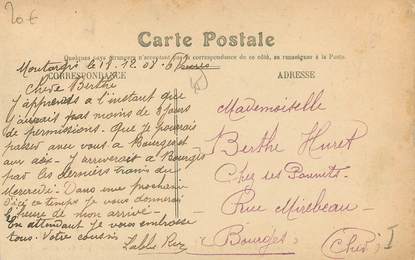 20€
Carte Postale
Quelques pays étrangers n'acceptant pas la correspondance de ce côté, se renseigner à la Poste.
CORRESPONDANCE
ADRESSE
Montargis le 19.12.08. 6 heures
Chère Berthe
J'apprends a l'instant que
j'aurais pas moins de 6 jours
de permissions. Que je pourrais
passer avec vous a Bourges et
aux aix. J'arriverait a Bourges
par les derniers trains du
Mercredi. Dans une prochaine
d'ici ce temps je vous donnerai
l'heure de mon arrivé
En attendant je vous embrasse
tous. Votre cousin
Mademoiselle
Berthe Huret
Chez des
Rue Mirebeau
Bourges
(Cher)